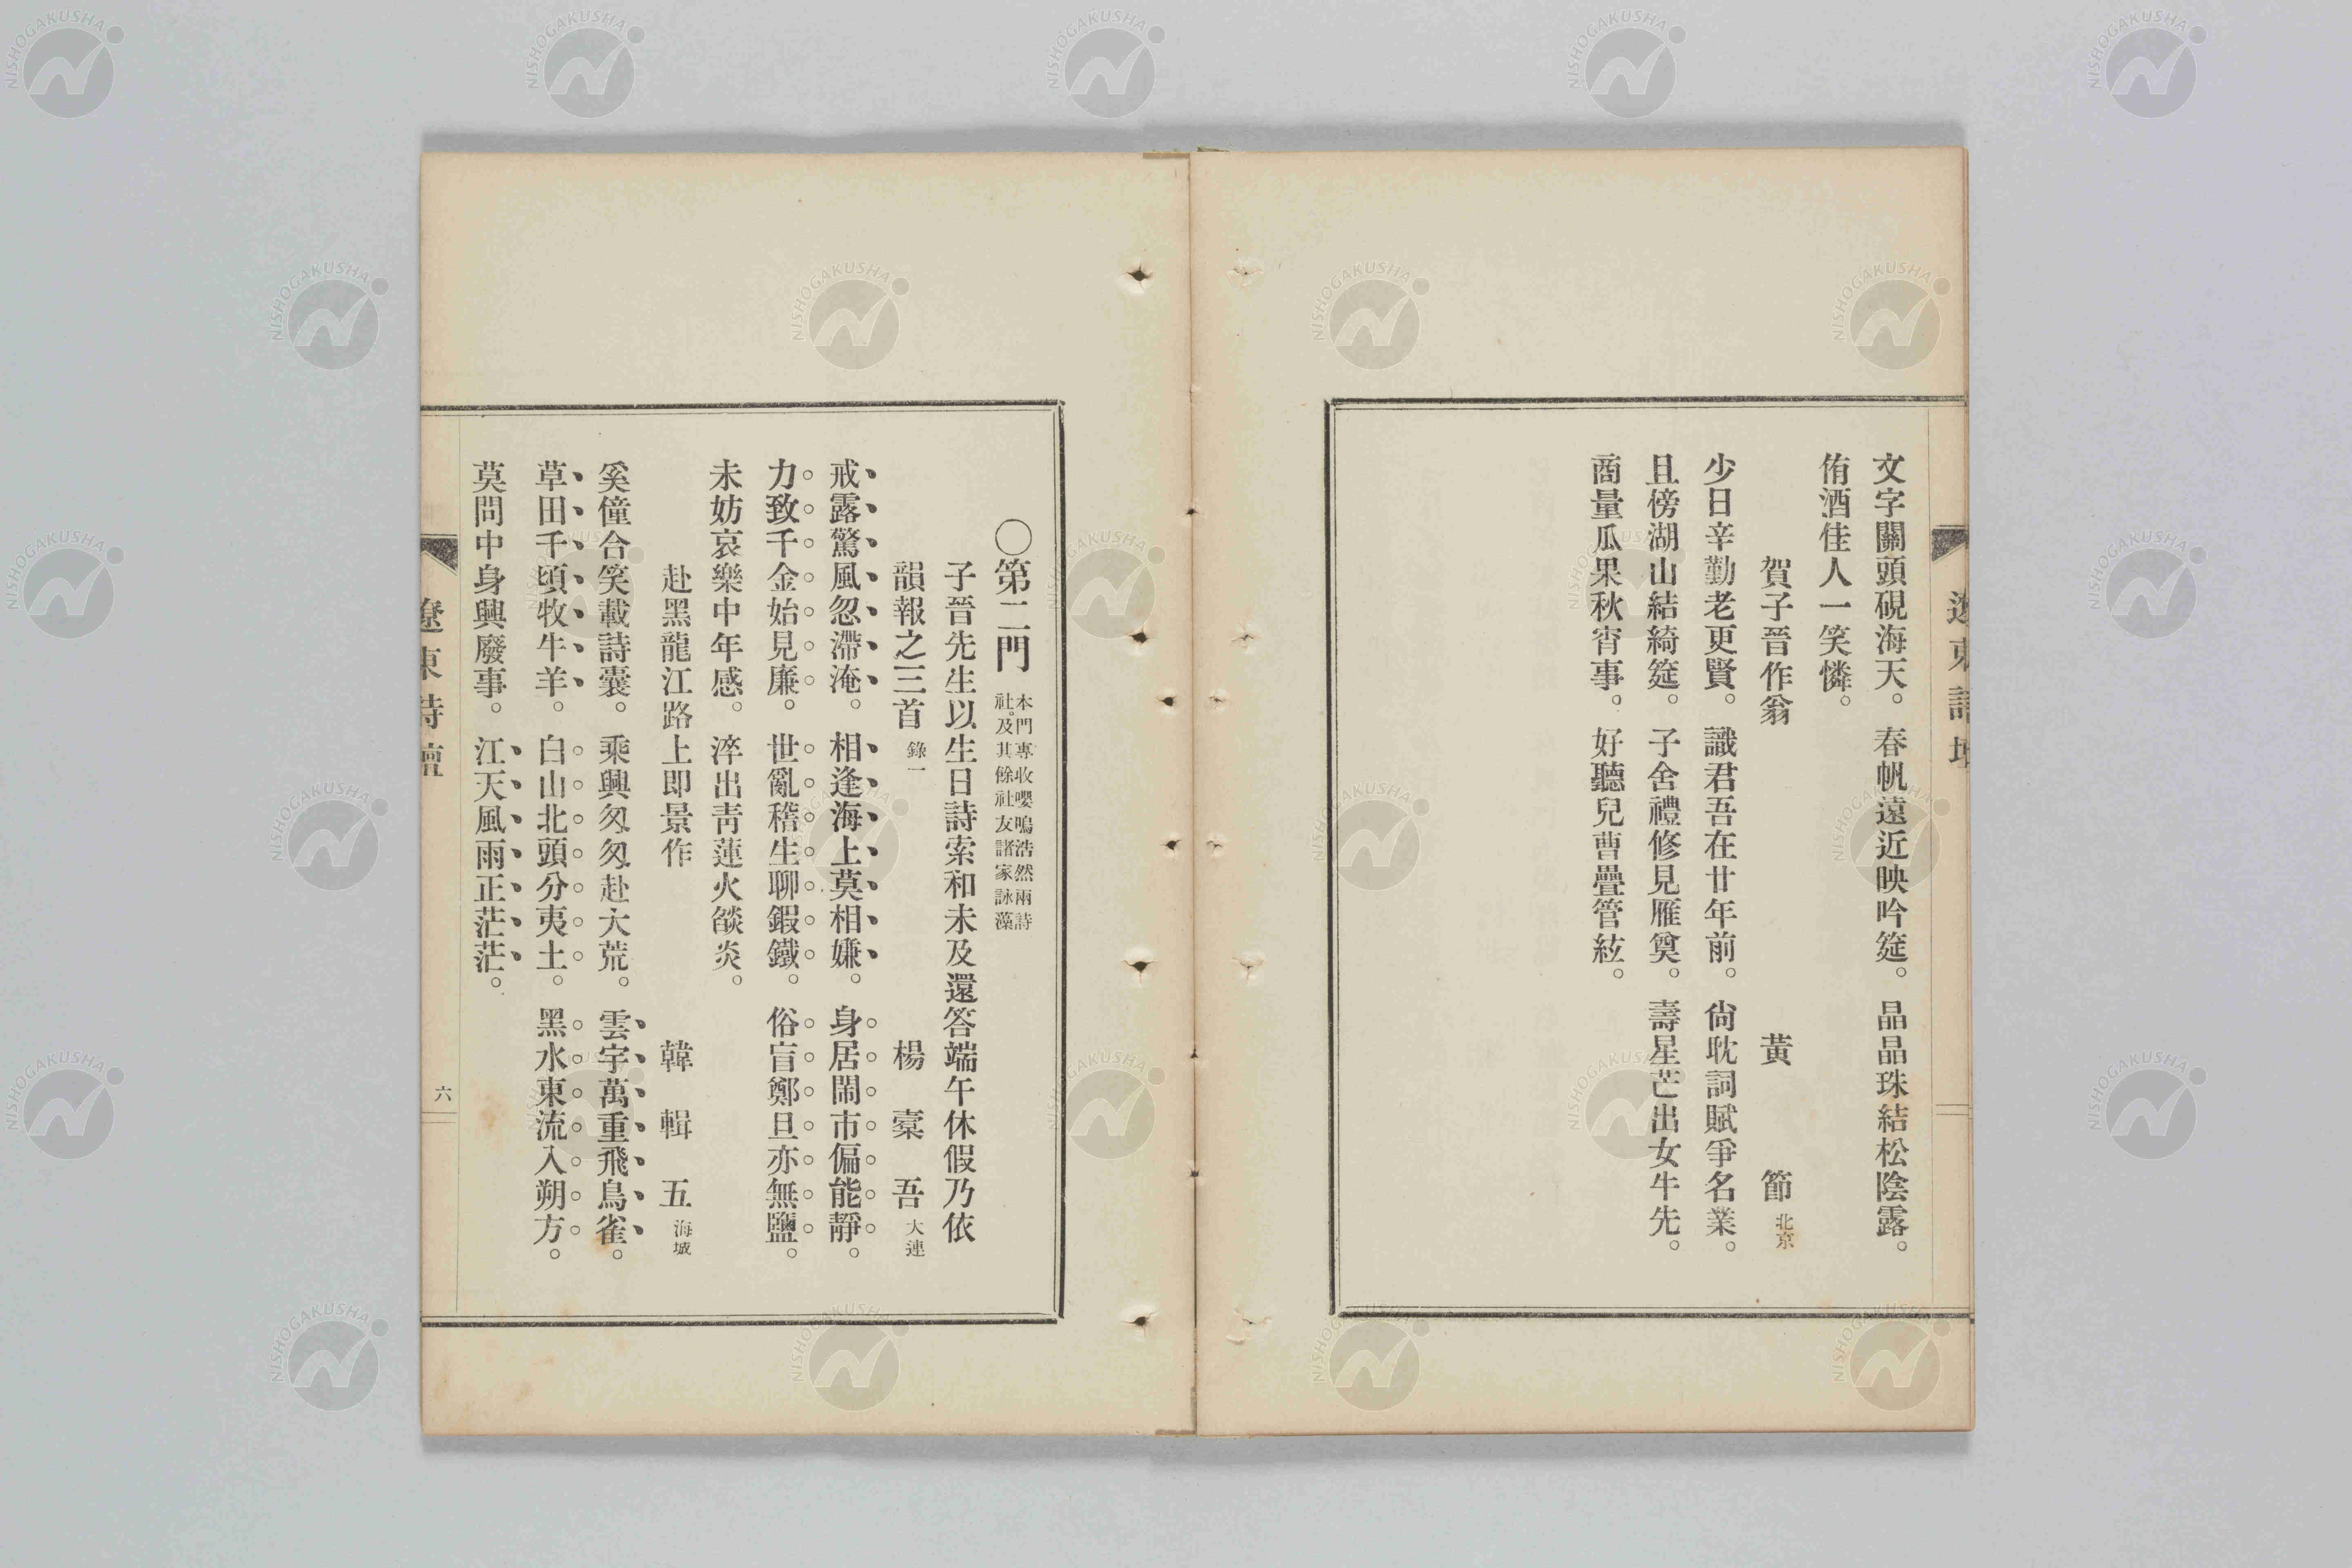 遼東詩壇
文字關頭硯海天。春帆遠近映吟筵。晶晶珠結松陰露。
侑酒佳人一笑憐。
賀子晉作翁 黃節 北京
少日辛勤老更賢。識君吾在廿年前。尙耽詞賦爭名業。
且傍湖山結綺筵。子舍禮修見雁奠。壽星芒出女牛先。
商量瓜果秋宵事。好聽兒曹疊管絃。
〇第二門 本門專收嚶鳴浩然兩詩
社。及其餘社友諸家詠藻
子晉先生以生日詩索和未及還答端午休假乃依
韻報之三首 錄一 楊槖吾 大連
戒露驚風忽滯淹。相逢海上莫相嫌。身居鬧市偏能靜。
力致千金始見廉。世亂稽生聊鍜鐵。俗盲鄭旦亦無鹽。
未妨哀樂中年感。淬出靑蓮火燄炎。
赴黑龍江路上即景作 韓輯五 海城
奚僮合笑載詩囊。乘興匆匆赴大荒。雲宇萬重飛鳥雀。
草田千頃牧牛羊。白山北頭分夷土。黑水東流入朔方。
莫問中身興廢事。江天風雨正茫茫。
遼東詩壇
六
NISHOGAKUSHA